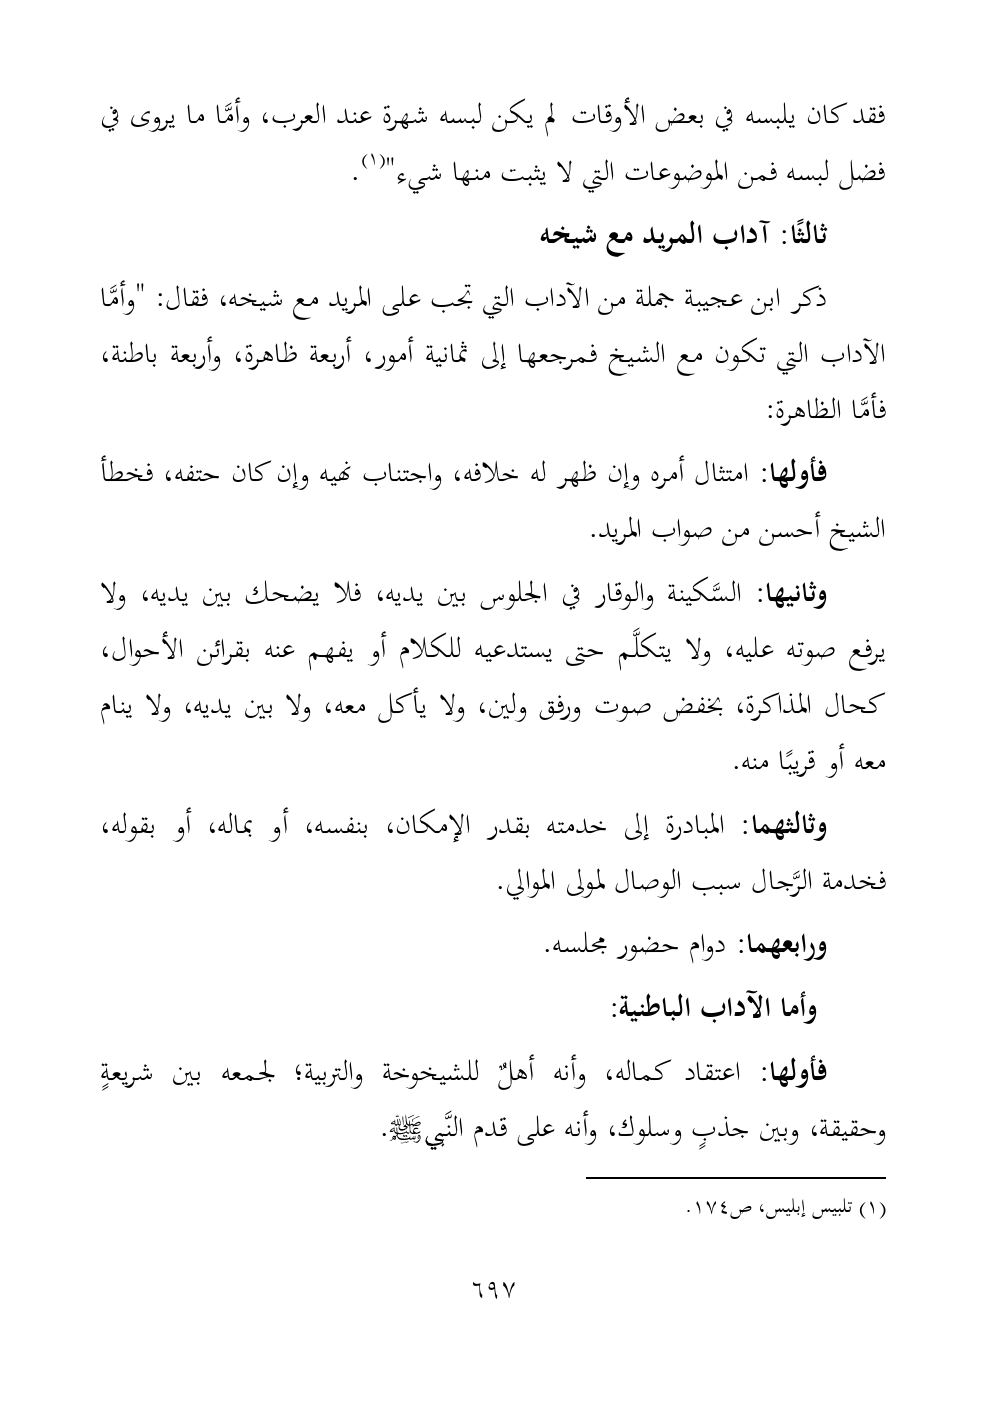 فقد كان يلبسه في بعض الأوقات لم يكن لبسه شهرة عند العرب، وأمَّا ما يروى في
فضل لبسه فمن الموضوعات التي لا يثبت منها شيء"(١).
ثالثًا: آداب المريد مع شيخه
ذكر ابن عجيبة جملة من الآداب التي تجب على المريد مع شيخه، فقال: "وأمَّا
الآداب التي تكون مع الشيخ فمرجعها إلى ثمانية أمور، أربعة ظاهرة، وأربعة باطنة،
فأمَّا الظاهرة:
فأولها: امتثال أمره وإن ظهر له خلافه، واجتناب نهيه وإن كان حتفه، فخطأ
الشيخ أحسن من صواب المريد.
وثانيها: السَّكينة والوقار في الجلوس بين يديه، فلا يضحك بين يديه، ولا
يرفع صوته عليه، ولا يتكلَّم حتى يستدعيه للكلام أو يفهم عنه بقرائن الأحوال،
كحال المذاكرة، بخفض صوت ورفق ولين، ولا يأكل معه، ولا بين يديه، ولا ينام
معه أو قريبًا منه.
وثالثهما: المبادرة إلى خدمته بقدر الإمكان، بنفسه، أو بماله، أو بقوله،
فخدمة الرَّجال سبب الوصال لمولى الموالي.
ورابعهما: دوام حضور مجلسه.
وأما الآداب الباطنية:
فأولها: اعتقاد كماله، وأنه أهلٌ للشيخوخة والتربية؛ لجمعه بين شريعةٍ
وحقيقة، وبين جذبٍ وسلوك، وأنه على قدم النَّبيﷺ.
(١) تلبيس إبليس، ص١٧٤.
٦٩٧